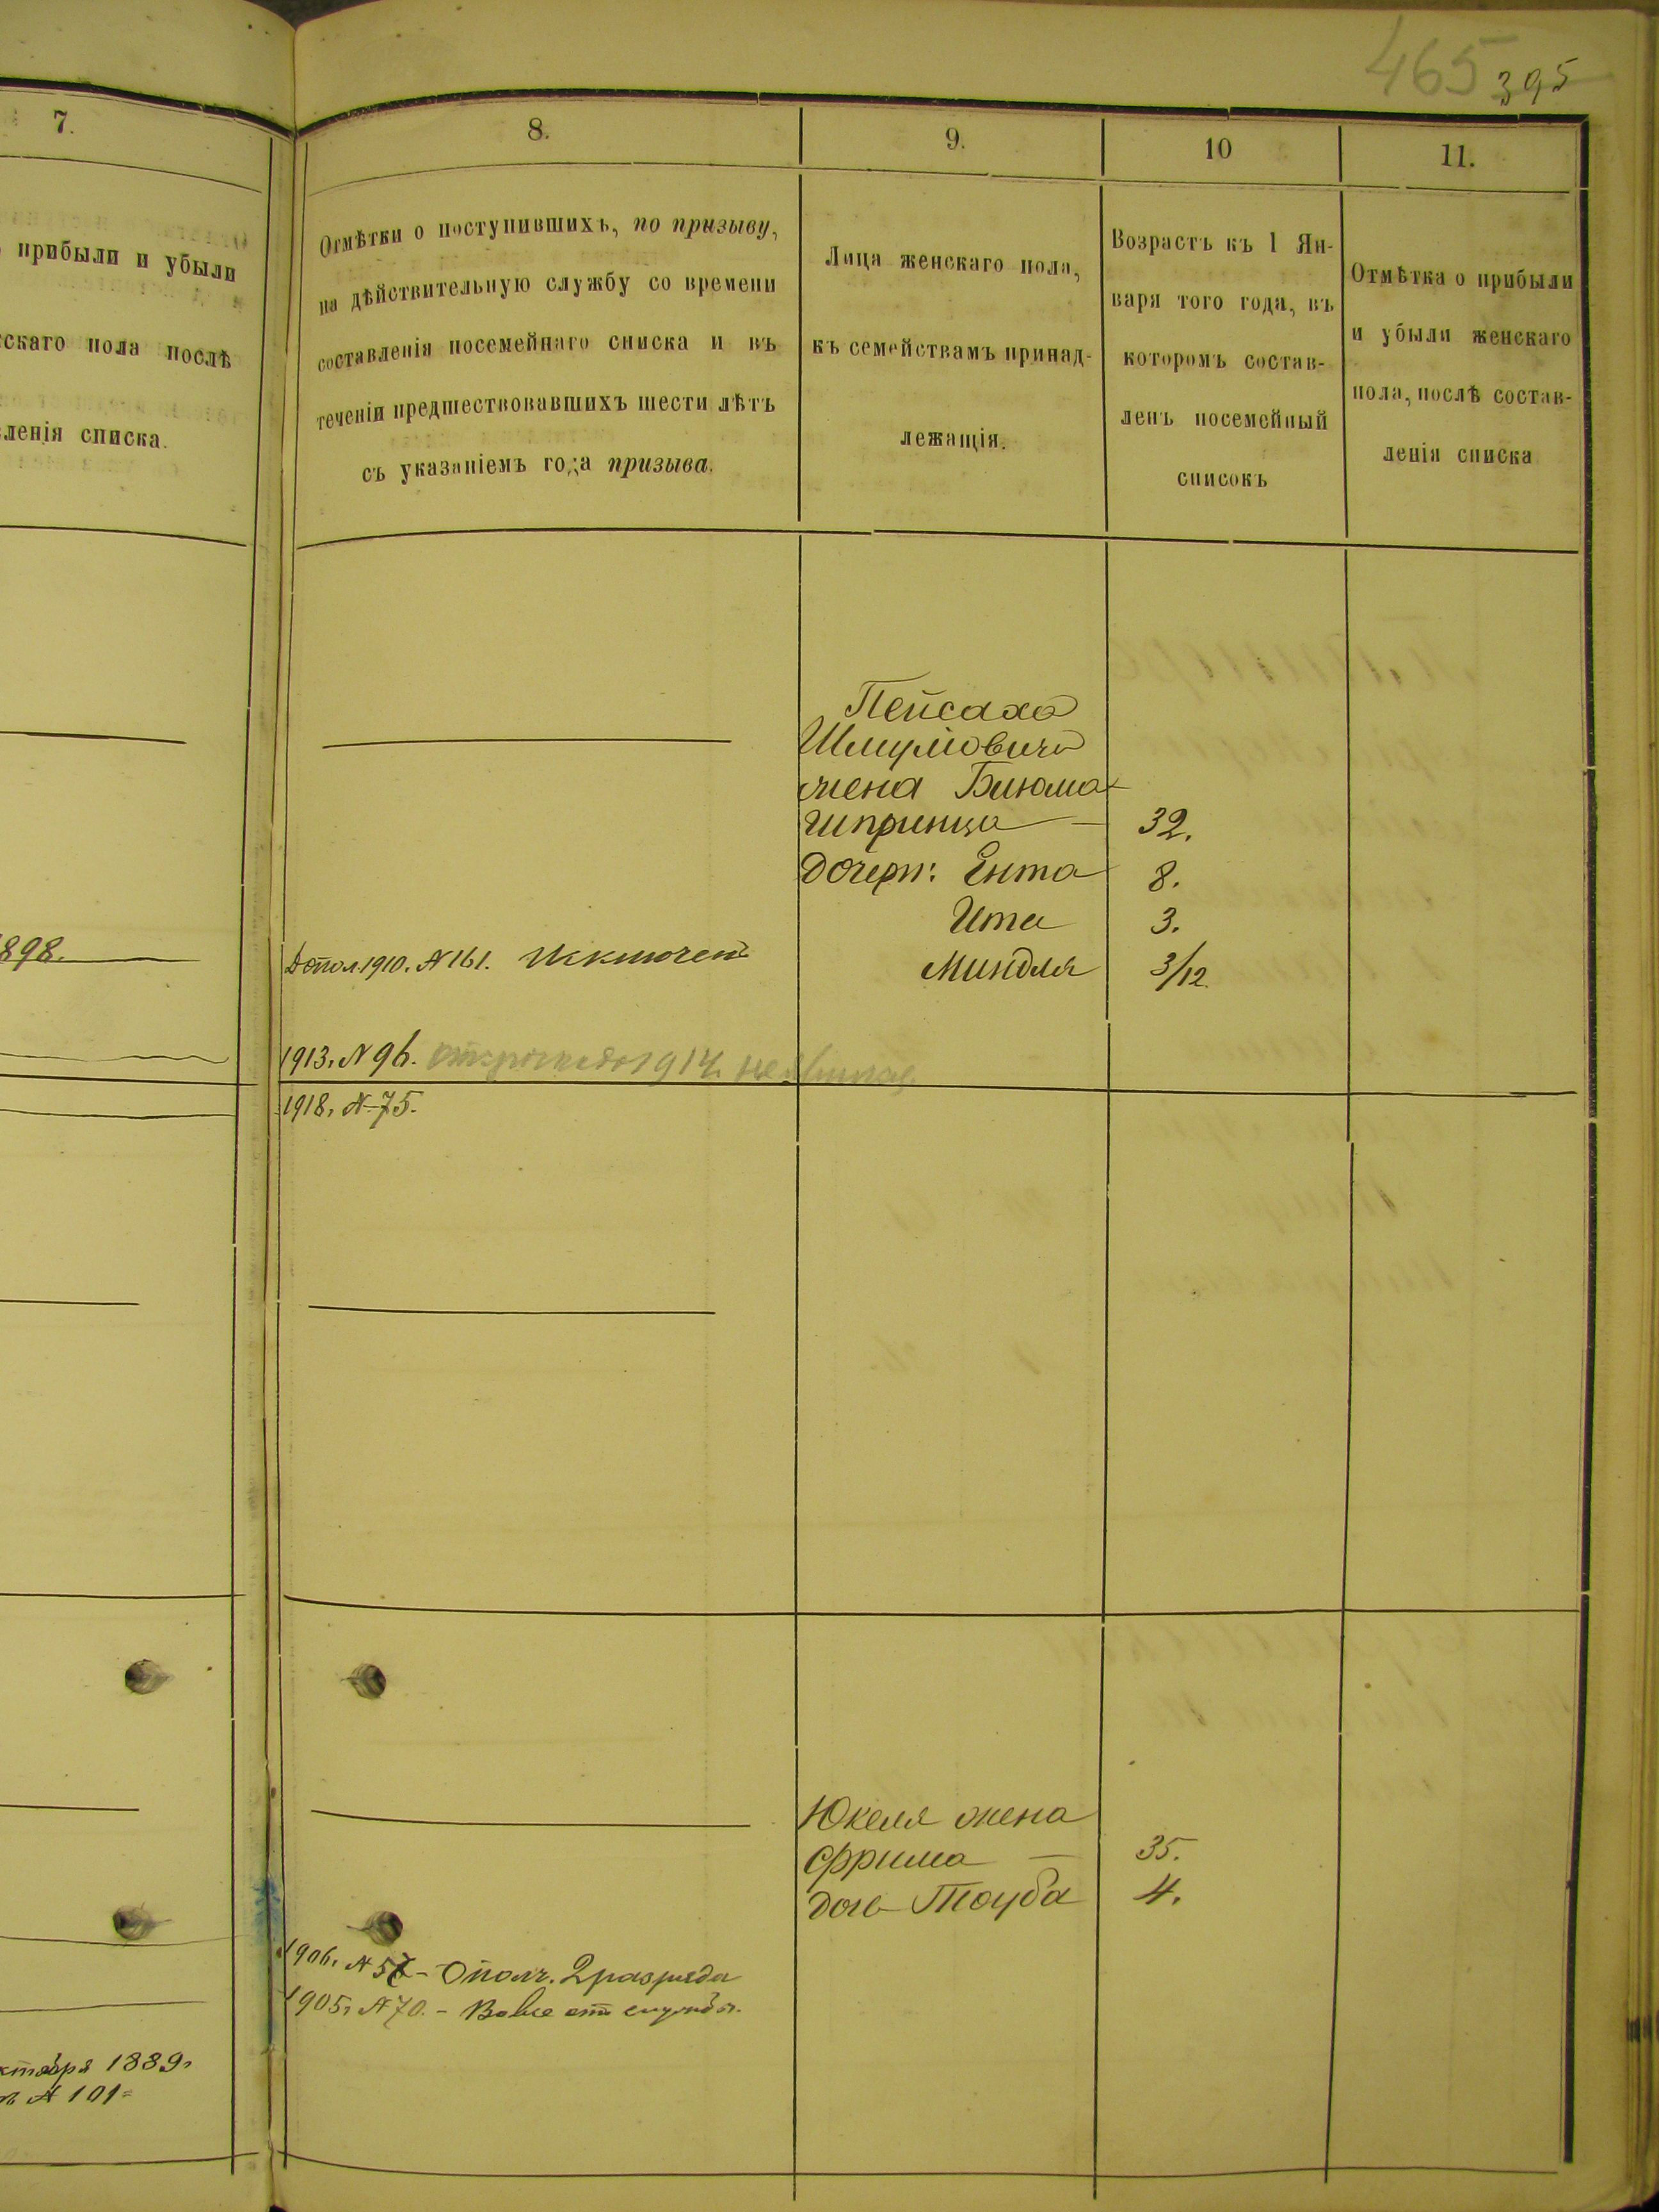 465 395
7.
прибыли и убыли
скаго пола послѣ
ленія списка.
898.
ктября 1889г
№ 101
8.
Отмѣтки о поступившихъ, по призыву,
на дѣйствительную службу со времени
составленія посемейнаго списка и въ
теченіи предшествовавшихъ шести лѣтъ
съ указаніемъ года призыва.
9.
Лица женскаго пола,
къ семействамъ принад-
лежащія.
10
Возрастъ къ 1 Ян-
варя того года, въ
которомъ состав-
ленъ посемейный
списокъ
11.
Отмѣтка о прибыли
и убыли женскаго
пола, послѣ состав-
ленія списка
Пейсаха
Шмуліовича
жена Блюма
Шпринца 32.
дочери: Ента 8.
Ита 3.
Допол. 1910. № 161. Исключенъ
Миндля 3/12.
1913, № 96. 1914
1918, № 75.
Юкеля жена
Фрима 35.
дочь Тауба 4.
1906, № - Ополч. 2 разряда
1905, № 70. - Вовсе отъ службы.